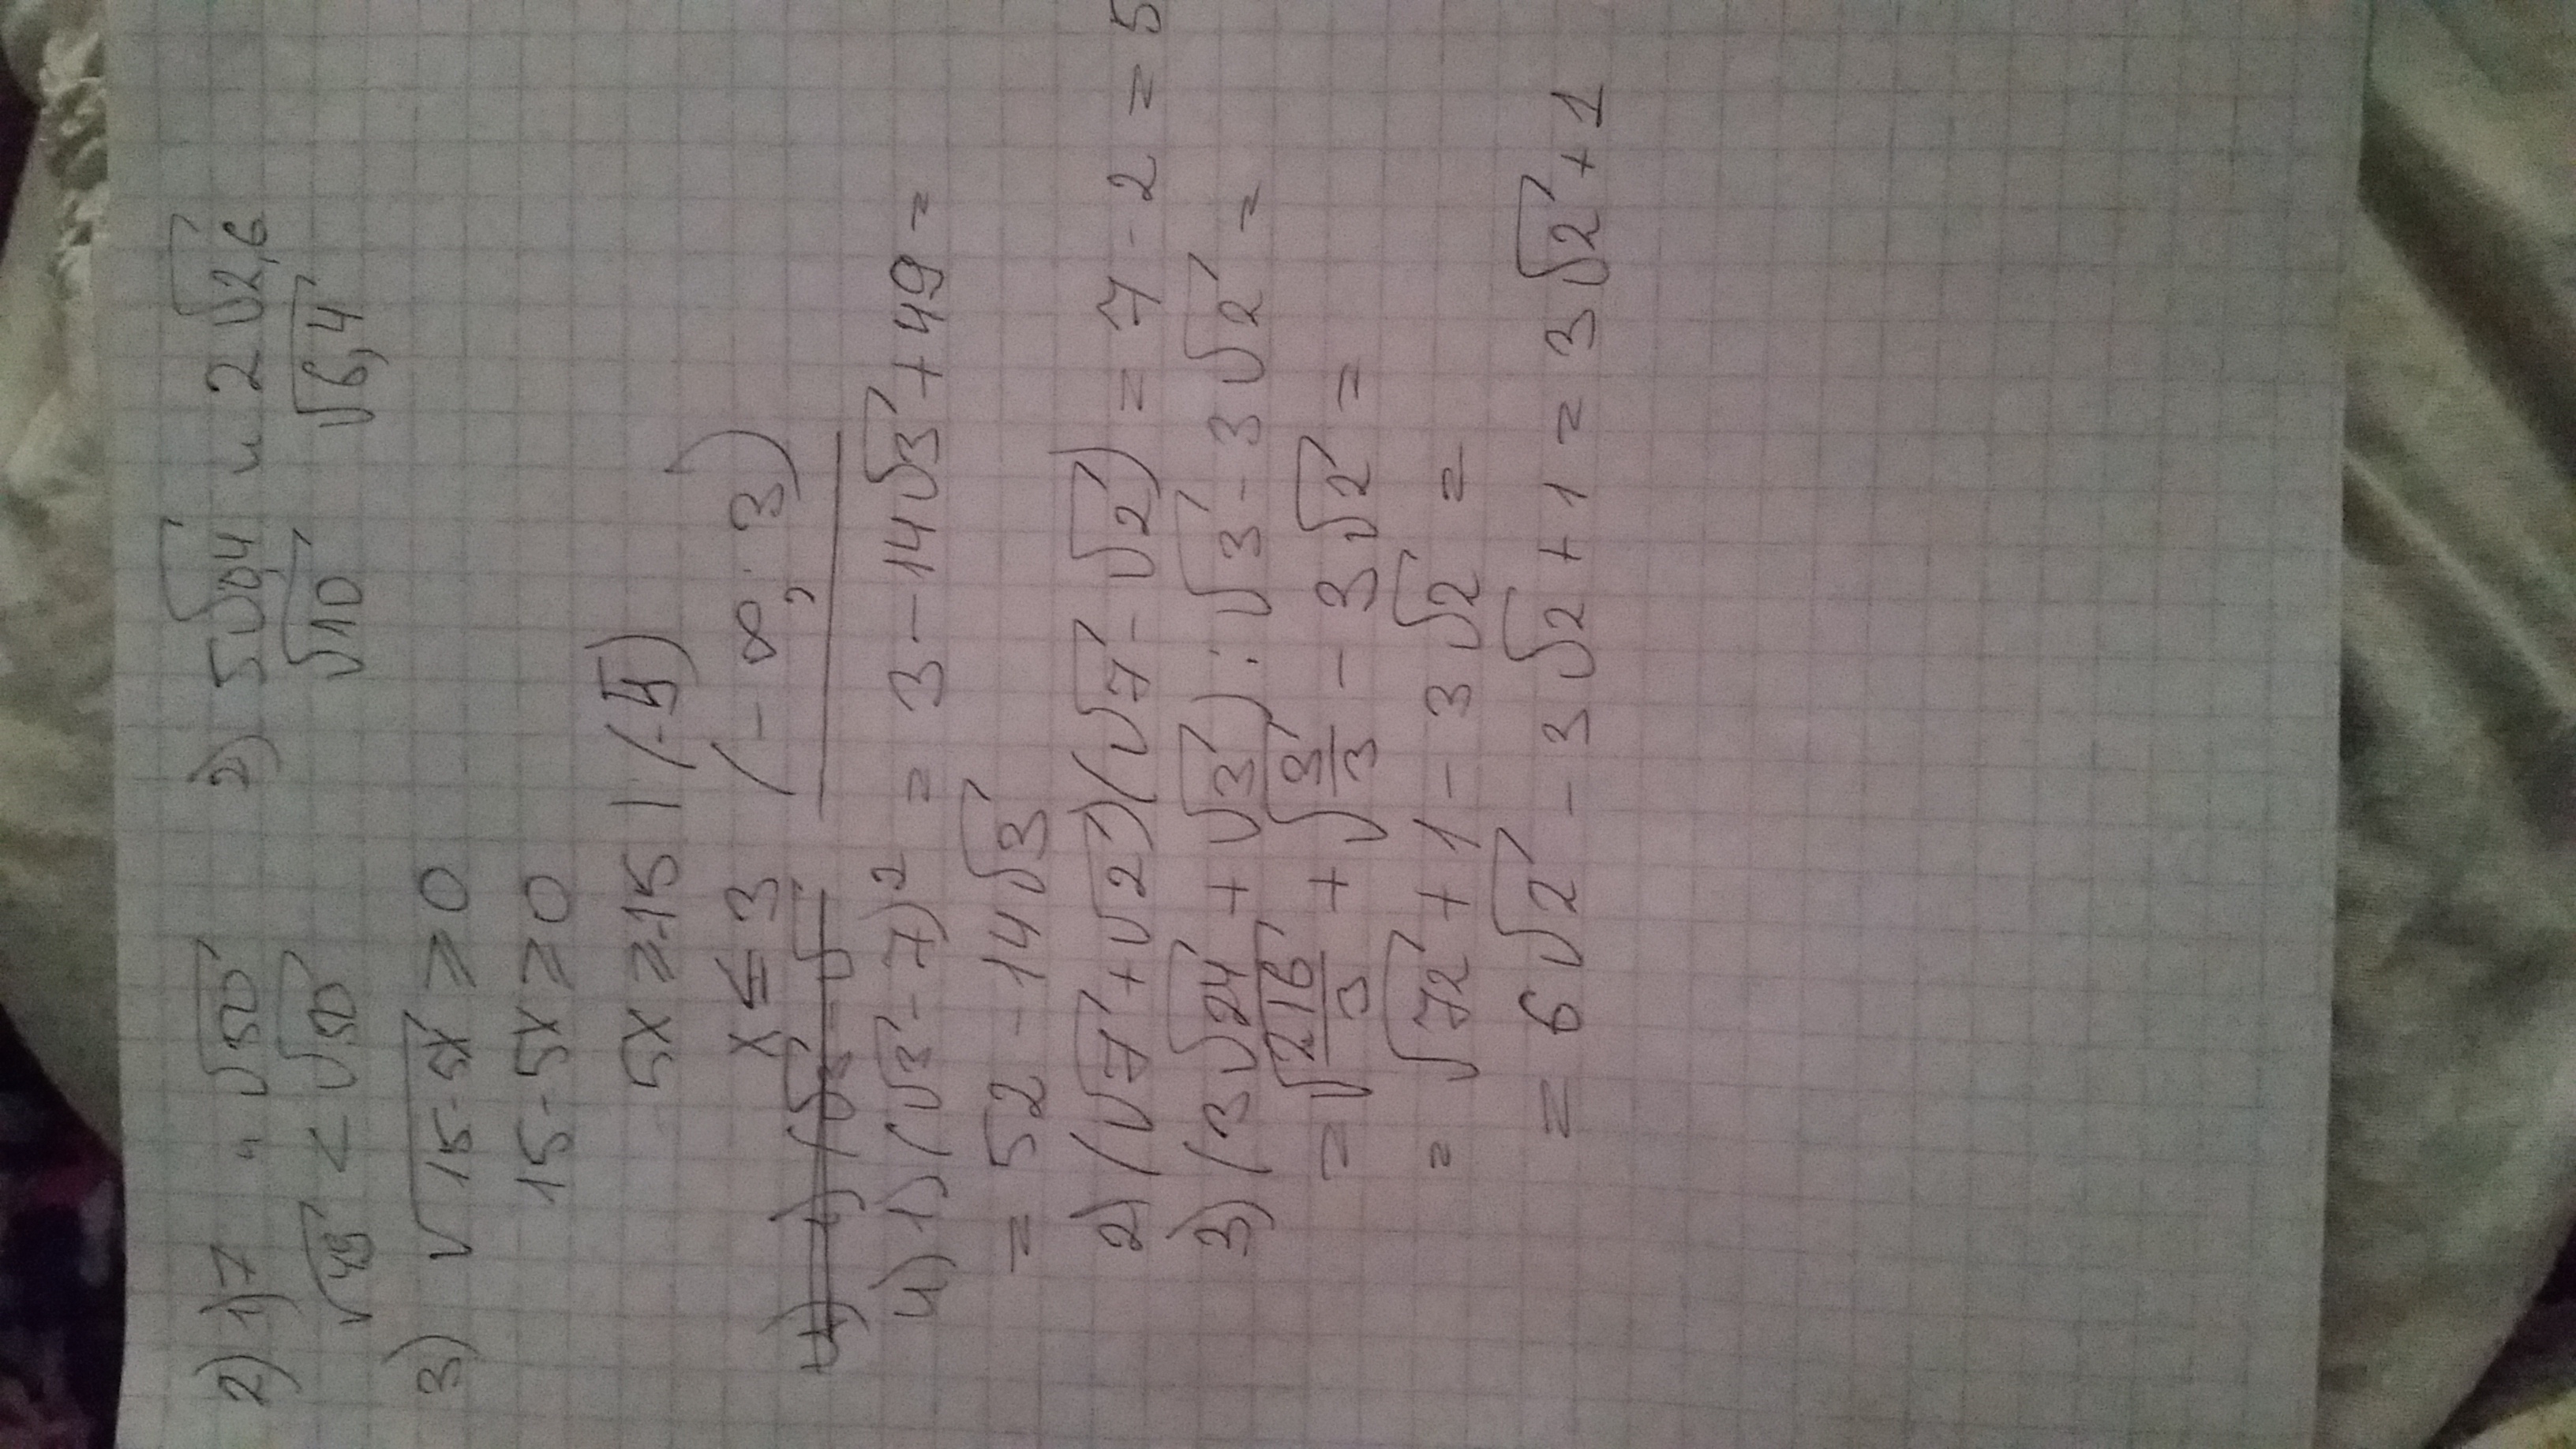 2) 1) 7 и √50 2) 5√0,4 и 2√2,6
√49 < √50 √10 √6,4
3) √15-5x ≥ 0
15-5x ≥ 0
5x ≥ -15 | (-5)
x ≤ 3 (-∞; 3)
4) 1) (√3-7)² = 3-14√3+49 =
= 52-14√3
2) (√7+√2)(√7-√2) = 7-2 = 5
3) (3√24+√3):√3-3√2 =
= √216/3 + √3/3 - 3√2 =
= √72+1-3√2 =
= 6√2-3√2+1 = 3√2+1